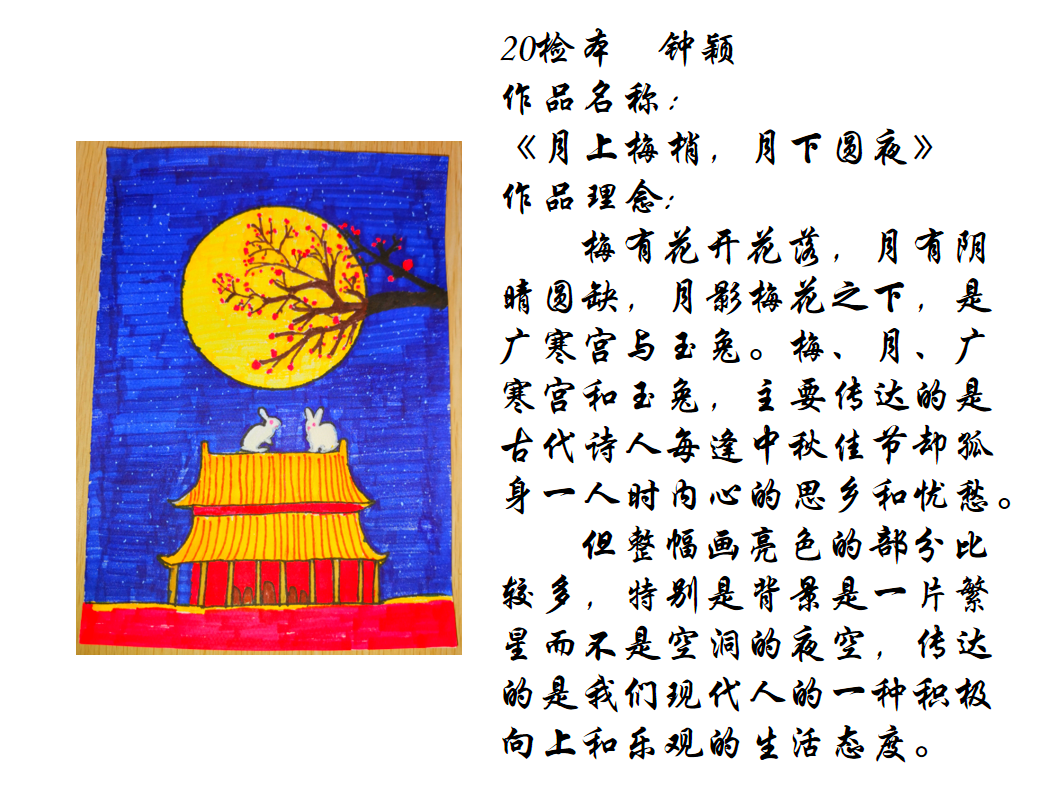 20检本 钟颖
作品名称:
《月上梅梢,月下圆夜》
作品理念:
梅有花开花落,月有阴
晴圆缺,月影梅花之下,是
广寒宫与玉兔。梅、月、广
寒宫和玉兔,主要传达的是
古代诗人每逢中秋佳节却孤
身一人时内心的思乡和忧愁。
但整幅画亮色的部分比
较多,特别是背景是一片繁
星而不是空洞的夜空,传达
的是我们现代人的一种积极
向上和乐观的生活态度。